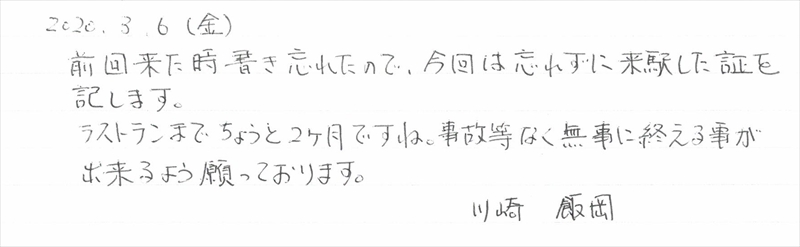 2020.3.6(金)
前回来た時書き忘れたので、今回は忘れずに来駅した証を
記します。
ラストランまでちょうど2ケ月ですね。事故等なく無事に終える事が
出来るよう願っております。
川崎 飯岡